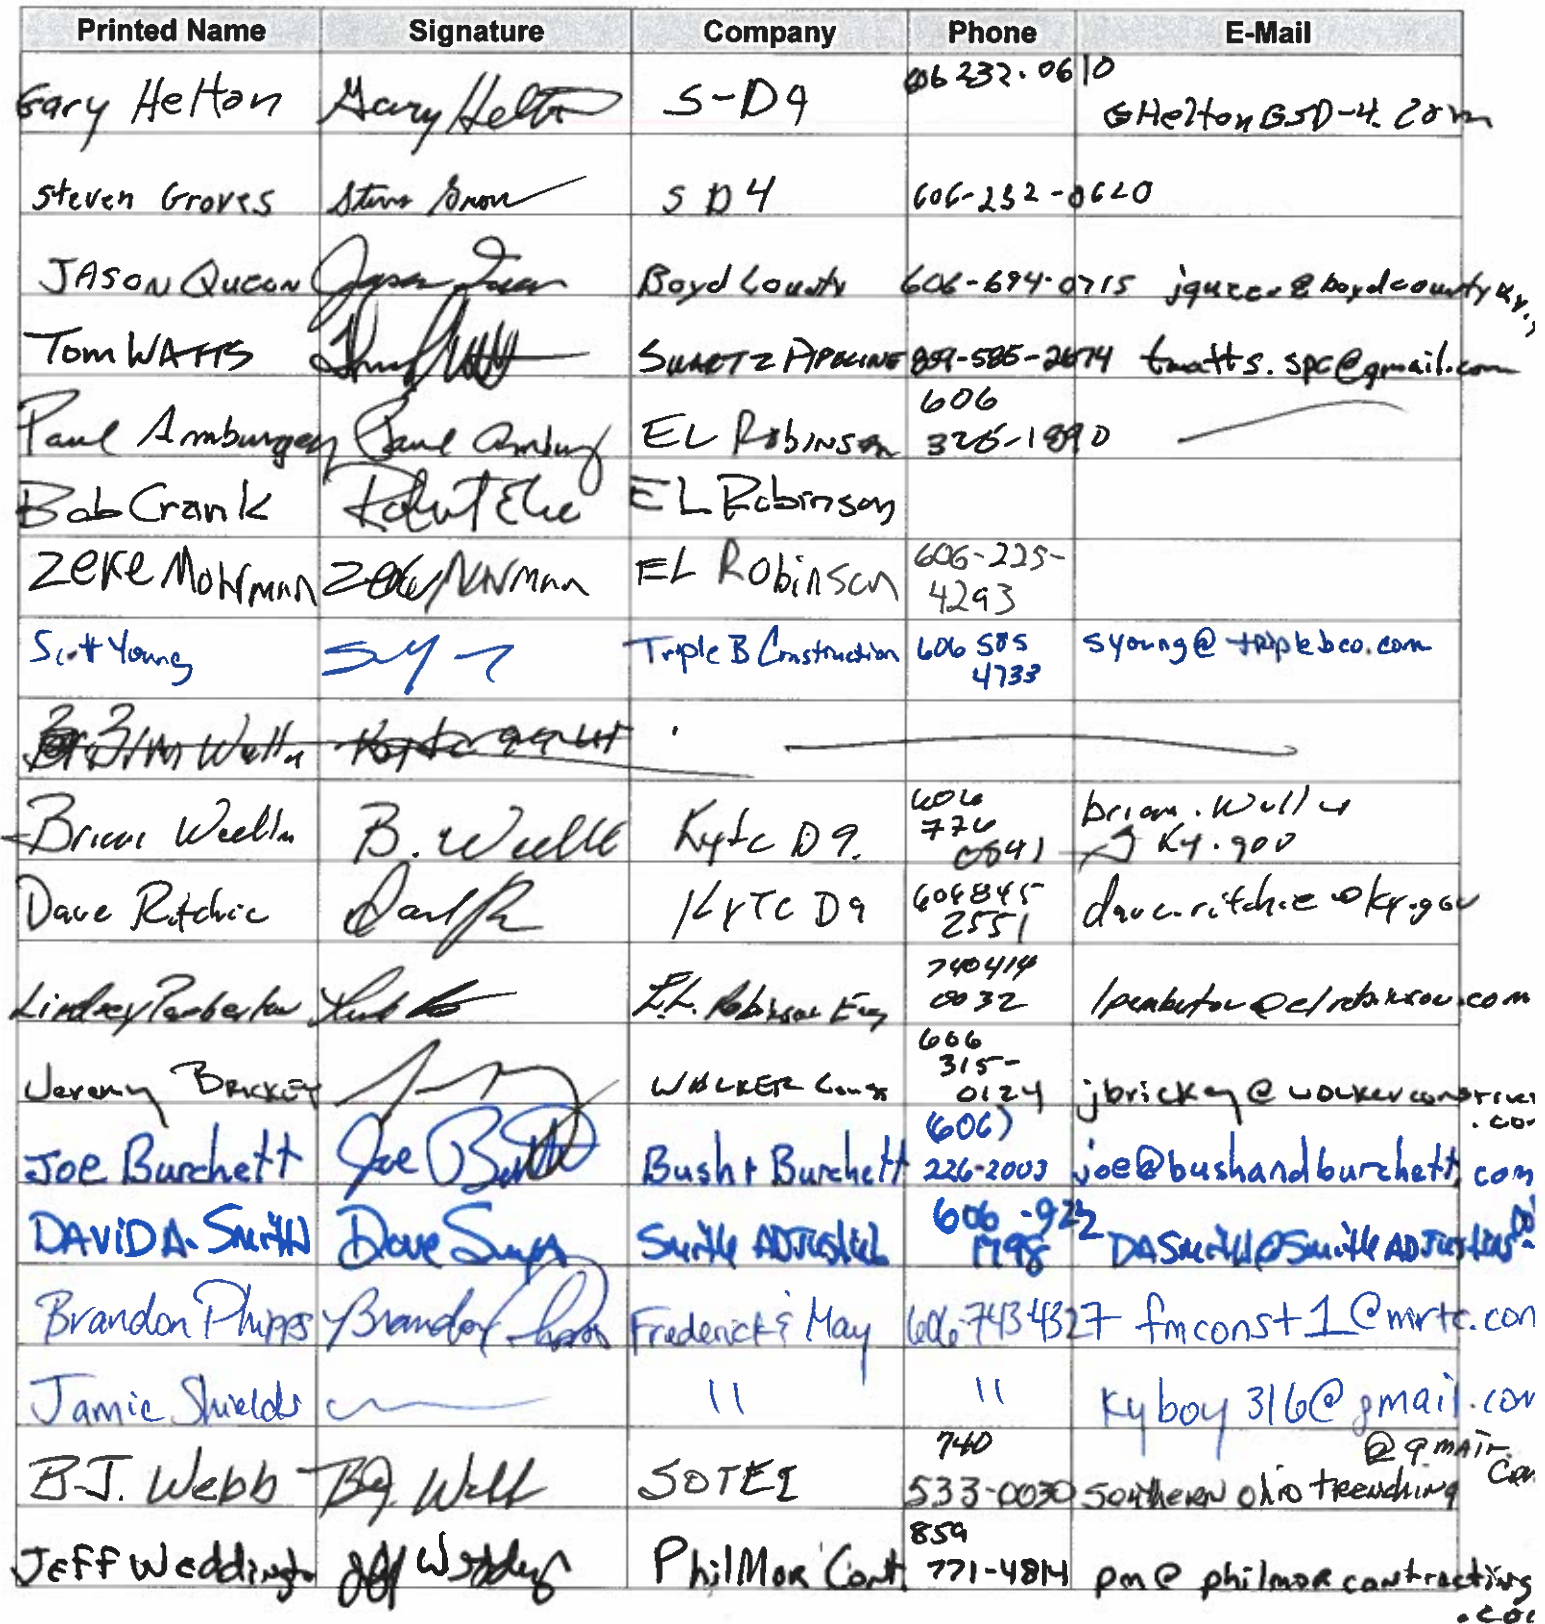 Printed Name Signature Company Phone E-Mail
Gary Helton Gary Helton S-D4 606 232.0610 GHelton@SD-4.Com
Steven Groves SD4 606-232-0620
JASON QUEEN Jason Queen Boyd County 606-694-0715 jqueen@boydcountyky.
Tom WATTS SWARTZ PIPELINE 859-585-2674 twatts.spc@gmail.com
Paul Amburgey Paul Amburgey EL Robinson 606
326-1890
Bob Crank EL Robinson
Zeke Mohrman Zeke Mohrman EL Robinson 606-225-
4293
Scott Young Triple B Construction 606 585 syoung@triplebco.com
4733
B. Kytc D9. 606 brian.
776 ky.gov
0841
Dave Ritchie KYTC D9 606 845- dave.ritchie@ky.gov
2551
Lindsey Pemberton E.L. Robinson Eng 740 414 lpemberton@elrobinson.com
0032
Jeremy BRICKEY WALKER Const 606
315-
0124 jbrickey@
.co
Joe Burchett Joe Burchett Bush & Burchett (606)
226-2003 joe@bushandburchett.com
DAVID A. Smith Dave Smith Smith 606-922
1798 DASmith@Smith
Brandon Phipps Brandon Phipps Frederick & May 606-743-4327 fmconst1@mrtc.com
Jamie Shields " " kyboy316@gmail.com
B.J. Webb BJ Webb SOTEI 740 @gmail.
533-0030 southern ohio trenching com
Jeff Weddington PhilMor Cont. 859
771-4814 pm@philmorcontracting
.co